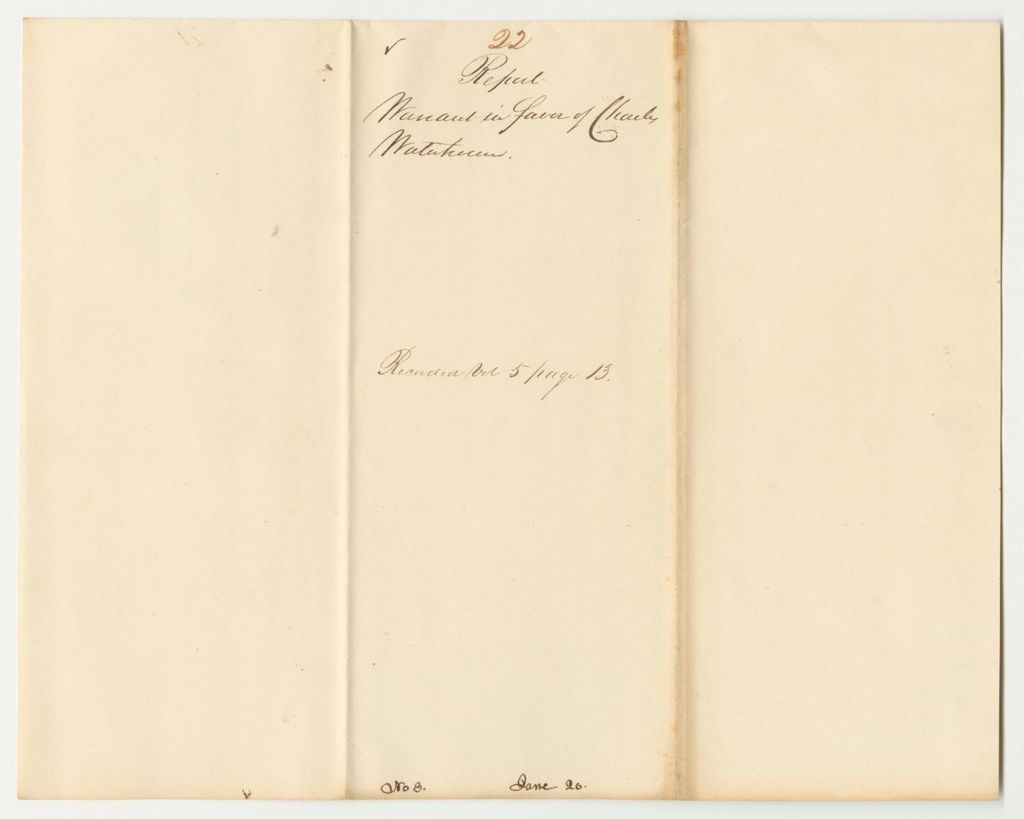 ✓ 22
Report
Warrant in favor of Charles
Waterhouse.
Recorded Vol 5 page 13.
No 8. June 26.